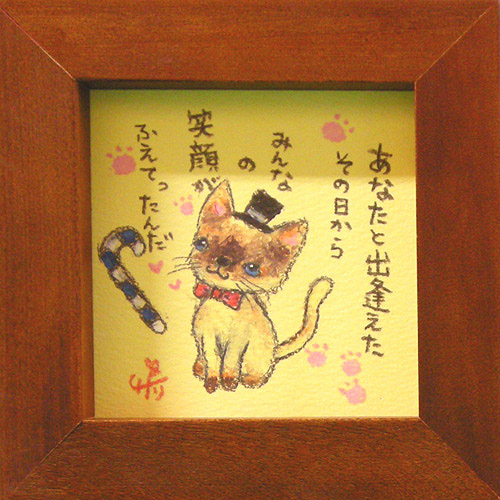 あなたと出逢えた
その日から
みんな
の
笑顔が
ふえてったんだ